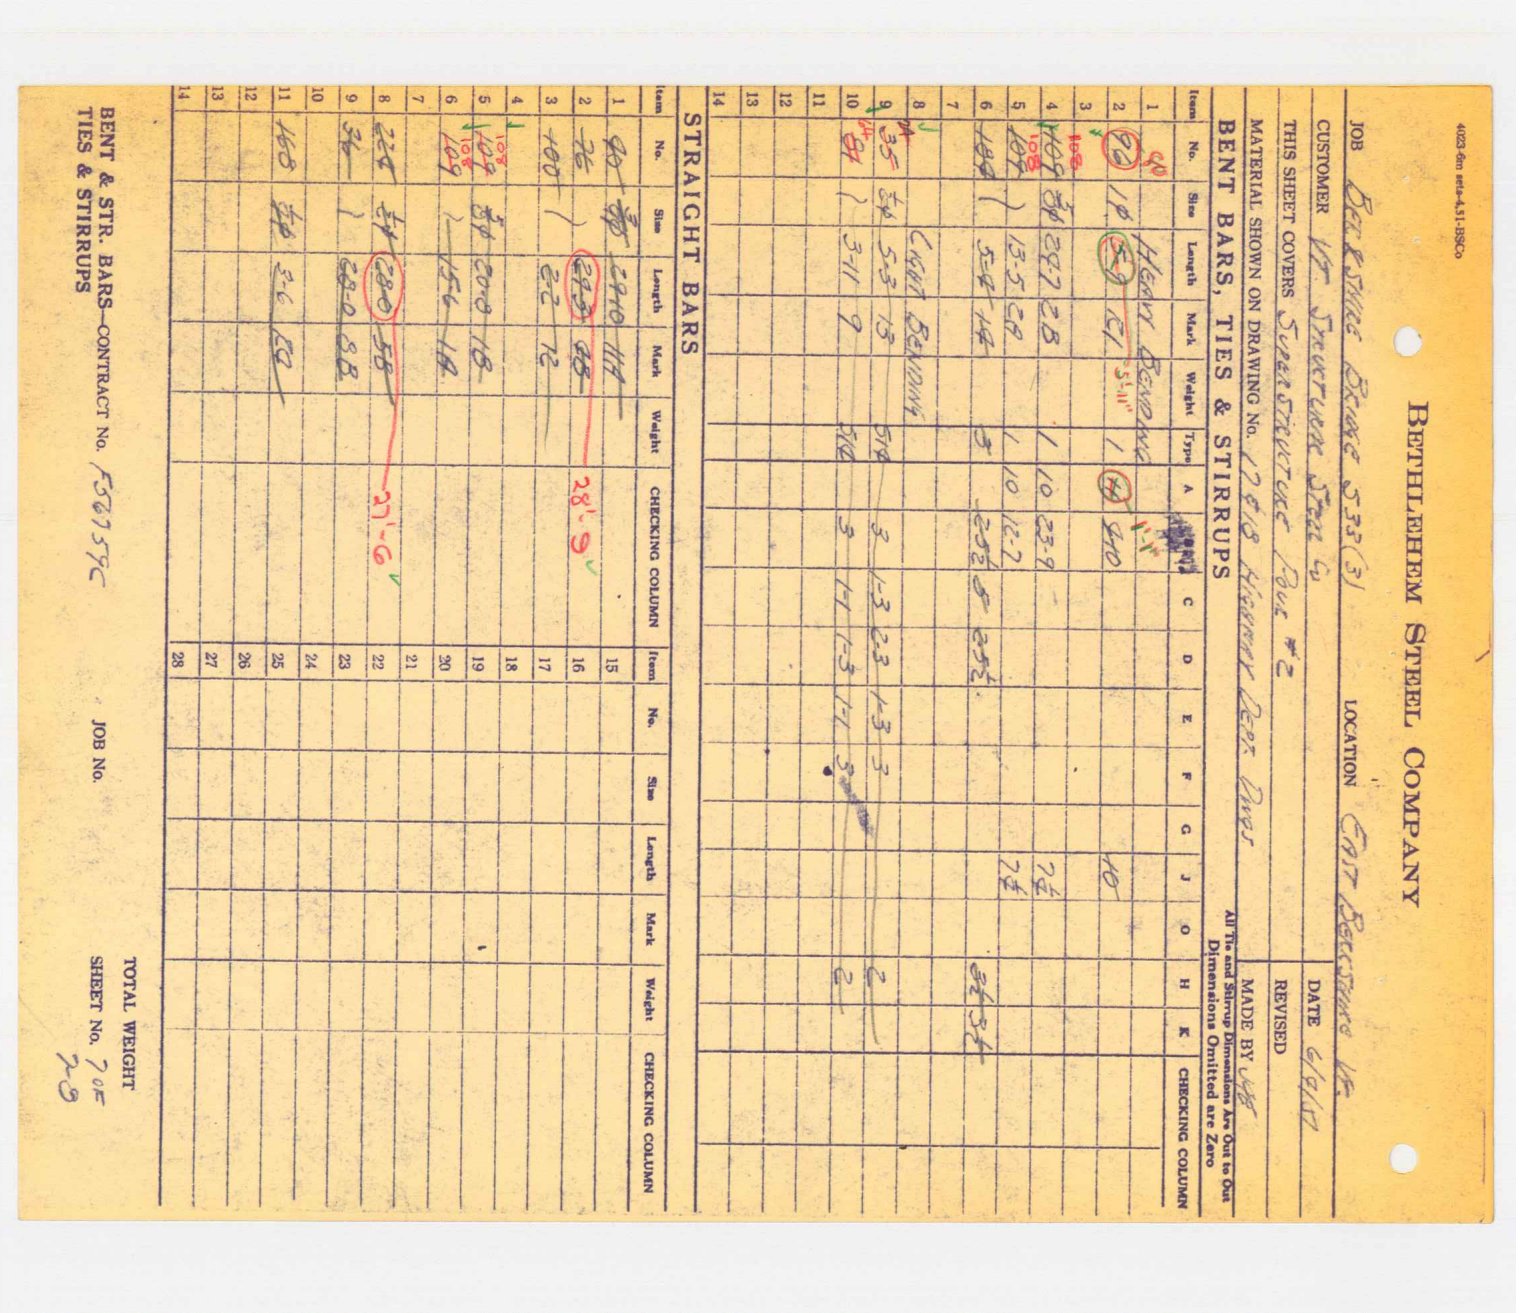 4023-6m sets-4.51-BSCo
BETHLEHEM STEEL COMPANY
JOB BERKSHIRE BRIDGE S 33(3) LOCATION EAST BERKSHIRE VT.
CUSTOMER VT. STRUCTURAL STEEL Co DATE 6/9/51
THIS SHEET COVERS SUPERSTRUCTURE POUR #2 REVISED
MATERIAL SHOWN ON DRAWING No. 17 & 18 HIGHWAY DEPT. DWGS MADE BY
BENT BARS, TIES & STIRRUPS All Tie and Stirrup Dimensions Are Out to Out
Dimensions Omitted are Zero
Item No. Size Length Mark Weight Type A C D E F G J O H K CHECKING COLUMN
1 90 HEAVY BENDING 1'-1"
2 96 1φ 5-9 R1 5'-11" 1 10 4-10 10
3 108
4 109 24-7 2B 1 10 23-9 7½
5 109 108 13-5 2A 1 10 12-7 7½
6 5-4 1A 3 8 3½ 3½
7
8 LIGHT BENDING
9 35 5-3 13 3 1-3 2-3 1-3 3 2
10 3-11 9 3 1-1 1-3 1-1 3 2
11
12
13
14
STRAIGHT BARS
Item No. Size Length Mark Weight CHECKING COLUMN Item No. Size Length Mark Weight CHECKING COLUMN
1 90 29-10 11A 15
2 76 29-3 28'-9 16
3 100 2-2 12 17
4 108 18
5 109 20-0 1B 19
6 109 108 15-6 1A 20
7 21
8 228 28-0 5B 27'-6 22
9 36 28-0 8B 23
10 24
11 168 3-6 25
12 26
13 27
14 28
TOTAL WEIGHT
BENT & STR. BARS—CONTRACT No. F56759C JOB No. SHEET No. 7 OF
TIES & STIRRUPS 7-8